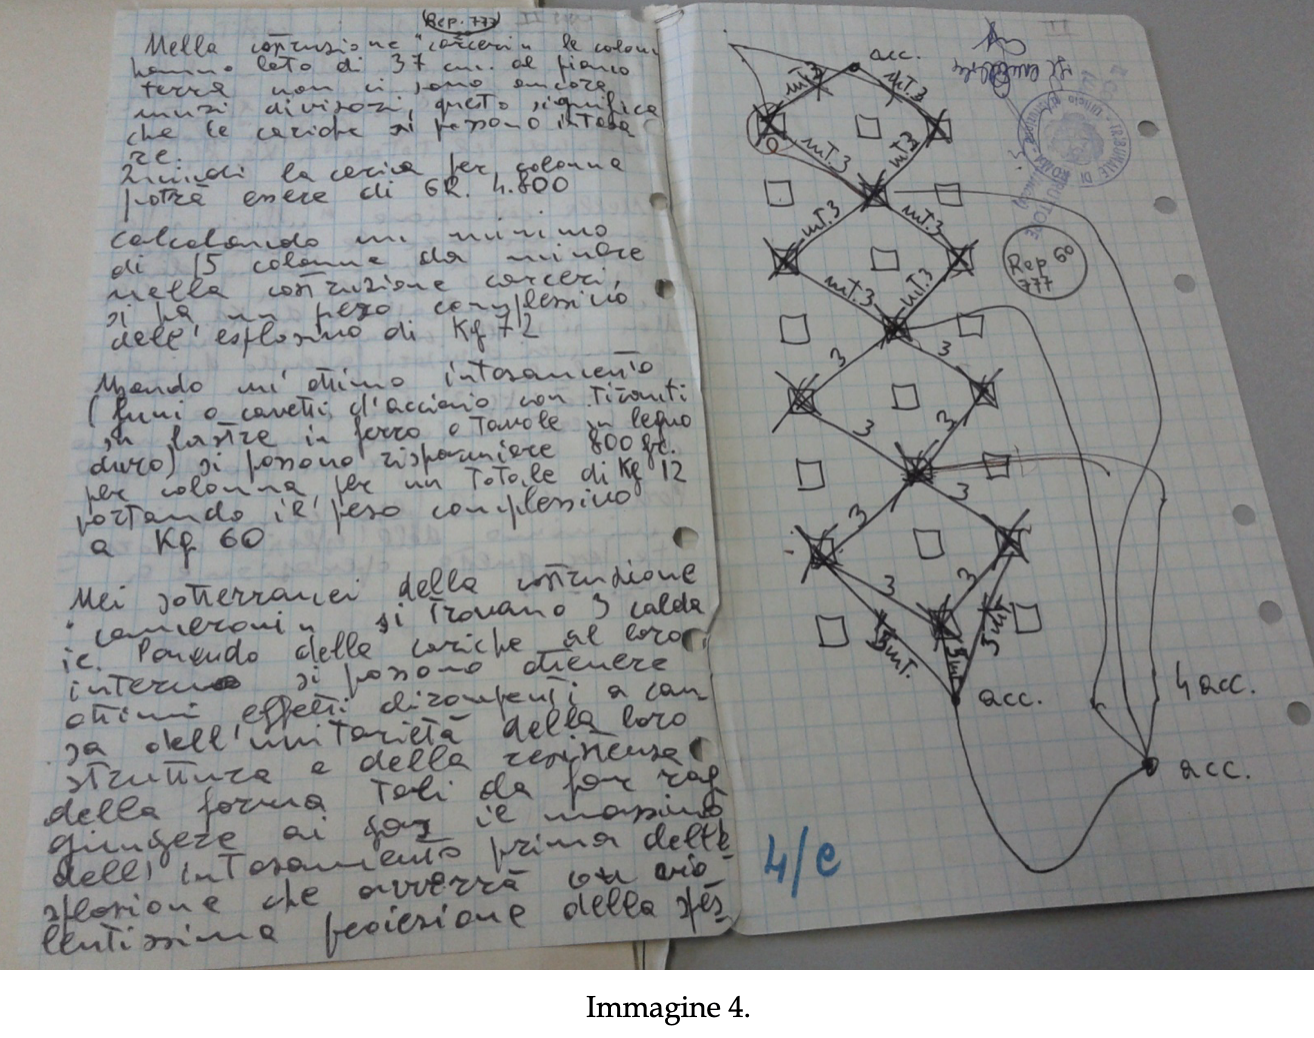 (Rep. 777)
Nella costruzione "carceri" le colonne
hanno lato di 37 cm. al piano
terra non ci sono ancora
muri divisori, questo significa
che le cariche si possono intasa
re.
Quindi la carica per colonna
potrà essere di GR. 4.800
Calcolando un minimo
di 15 colonne da minare
nella costruzione carceri,
si ha un peso complessivo
dell'esplosivo di Kg 72
Usando un'ottimo intasamento
(funi o cavetti d'acciaio con tiranti
su lastre in ferro o tavole in legno
duro) si possono risparmiare 800 gr.
per colonna, per un totale di Kg 12
portando il peso complessivo
a Kg 60
Nei sotterranei della costruzione
"cameroni" si trovano 3 calda
ie. Ponendo delle cariche al loro
interno si possono ottenere
ottimi effetti dirompenti a cau
sa dell'unitarietà della loro
struttura e della resistenza
della forma tali da far rag
giungere ai gas il massimo
dell'intasamento prima dell'e
splosione che avverrà con vio
lentissima proiezione della
acc.
mt.3 mt.3
mt.3 mt.3
mt.3 mt.3
Rep 60
777
mt.3 mt.3
3 3
3 3
3 3
3 3
3mt. 3mt 3mt
acc.
4 acc.
acc.
4/e
TRIBUNALE DI
ROMA
Immagine 4.